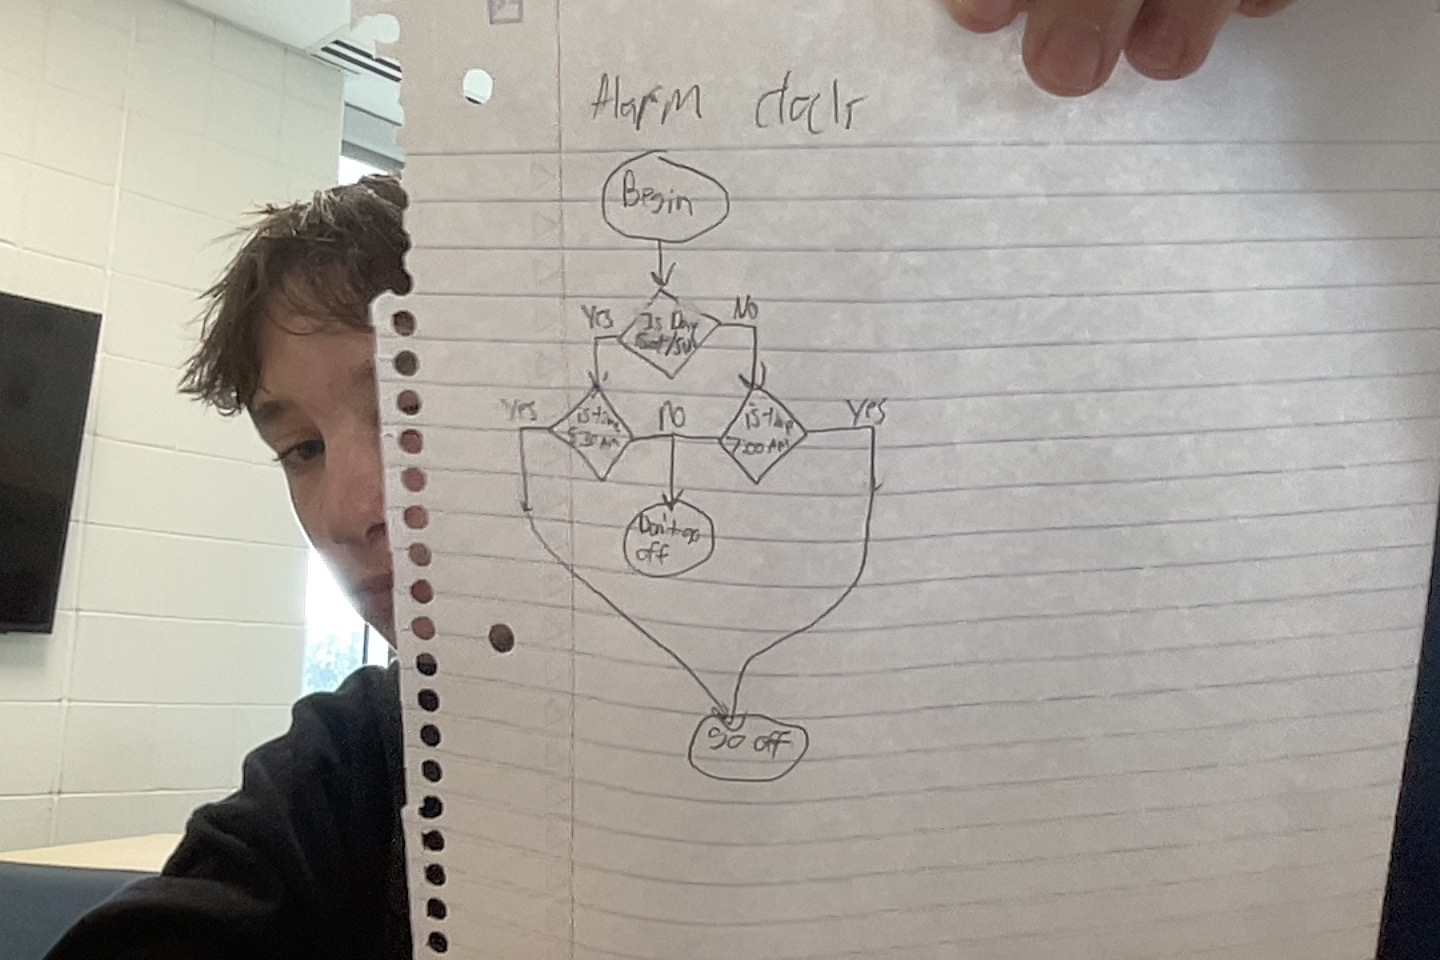 Alarm clock
Begin
Yes
No
Is Day
Sat/Sun
Yes
is time
8:30 AM
No
is time
7:00 AM
Yes
Don't go
off
go off